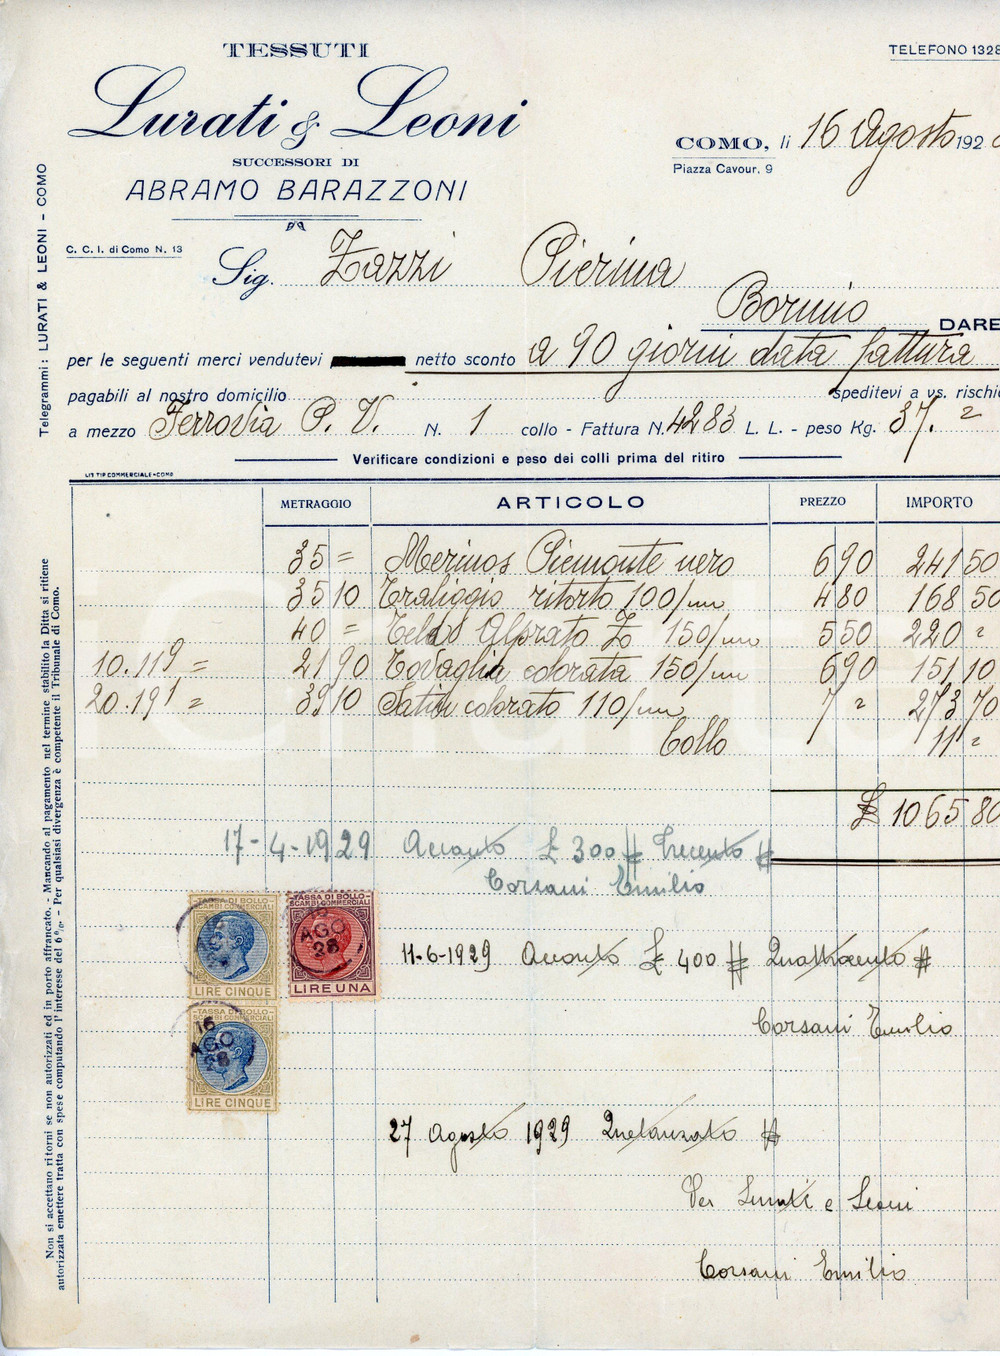 TESSUTI
Lurati & Leoni
SUCCESSORI DI
ABRAMO BARAZZONI
TELEFONO 1328
COMO, li 16 Agosto 192
Piazza Cavour, 9
C. C. I. di Como N. 13
Telegrammi: LURATI & LEONI - COMO
Sig. Zazzi Pierina
Bormio DARE
per le seguenti merci vendutevi netto sconto a 90 giorni data fattura
pagabili al nostro domicilio speditevi a vs. rischio
a mezzo Ferrovia P. V. N. 1 collo - Fattura N. 4283 L. L. - peso Kg. 37.=
Verificare condizioni e peso dei colli prima del ritiro
LIT TIP COMMERCIALE - COMO
METRAGGIO ARTICOLO PREZZO IMPORTO
35 = Merinos Piemonte nero 6 90 241 50
35 10 Traliggio ritorto 100/m 4 80 168 50
40 = 150/m 5 50 220 =
10.119 = 21 90 Tovaglia colorata 150/m 6 90 151 10
20.191 = 39 10 Satin colorato 110/m 7 = 273 70
Collo 11 =
£ 1065 80
17-4-1929 Acconto £ 300 # Trecento #
Corsani Emilio
TASSA DI BOLLO
SCAMBI COMMERCIALI
LIRE CINQUE
TASSA DI BOLLO
SCAMBI COMMERCIALI
AGO
28
LIRE UNA
11-6-1929 Acconto £ 400 # Quattrocento #
Corsani Emilio
TASSA DI BOLLO
SCAMBI COMMERCIALI
16
AGO
28
LIRE CINQUE
27 Agosto 1929 Quetanzato #
Per Lurati e Leoni
Corsani Emilio
Non si accettano ritorni se non autorizzati ed in porto affrancato. - Mancando al pagamento nel termine stabilito la Ditta si ritiene
autorizzata emettere tratta con spese computando l'interesse del 6%. - Per qualsiasi divergenza è competente il Tribunale di Como.